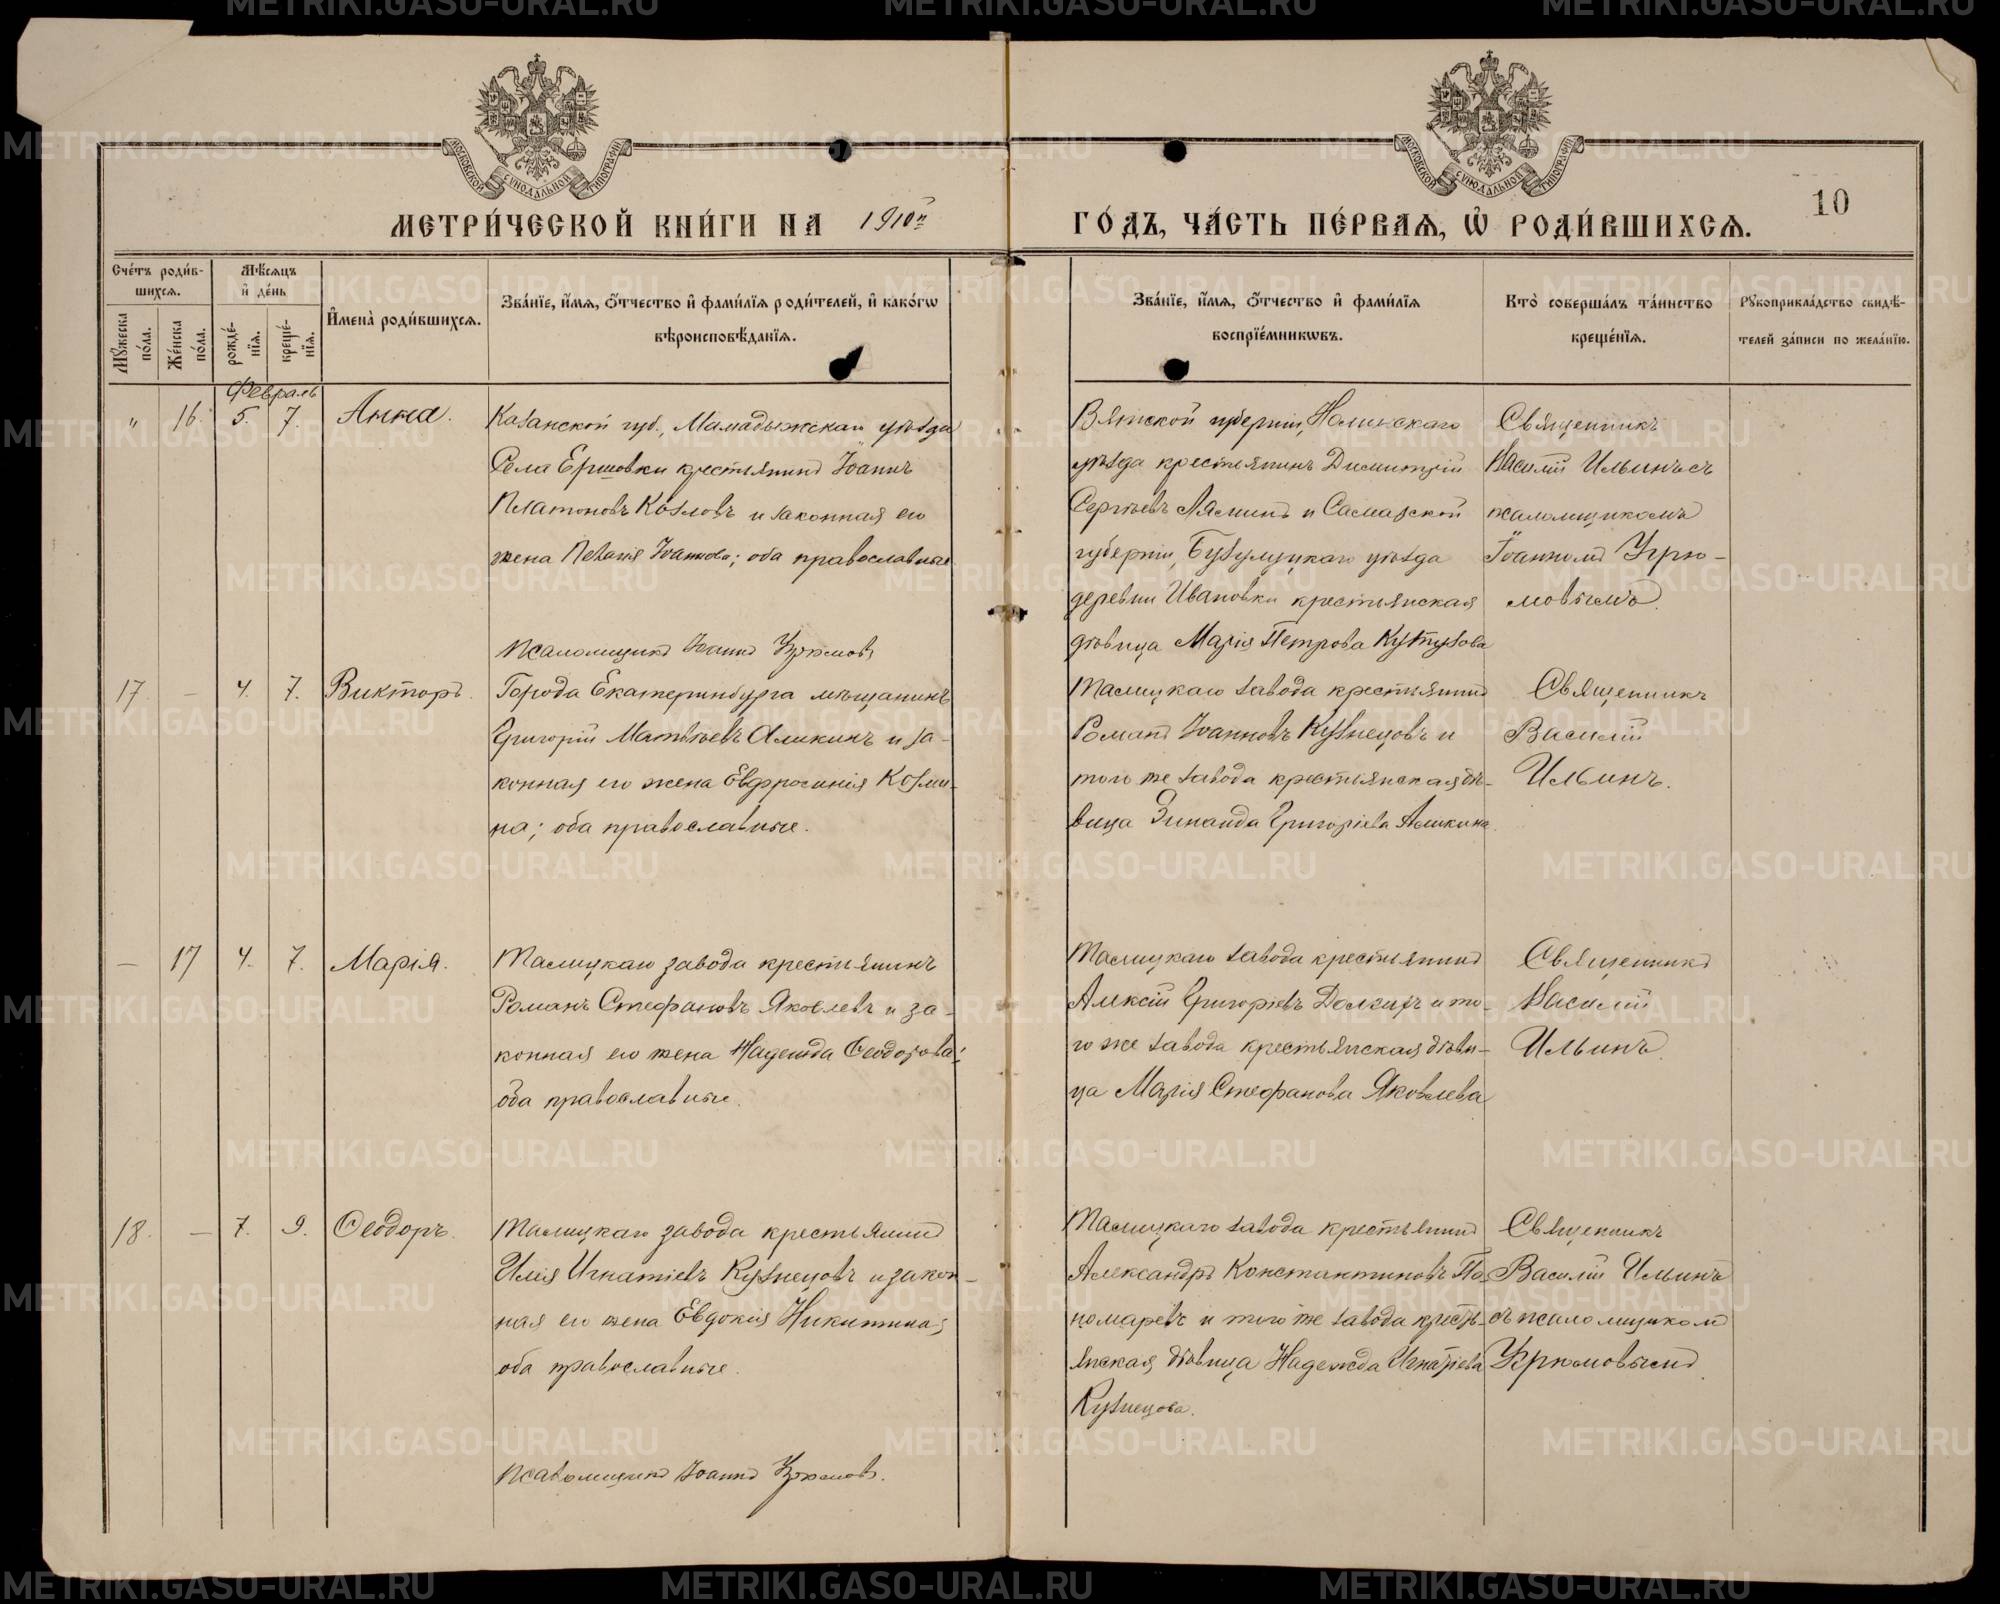 МОСКОВСКОЙ СѴНОДАЛЬНОЙ ТИПОГРАФІИ
МОСКОВСКОЙ СѴНОДАЛЬНОЙ ТИПОГРАФІИ
10
МЕТРИ́ЧЕСКОЙ КНИ́ГИ НА 1910й
ГО́ДЪ, ЧА́СТЬ ПЕ́РВАѦ, Ѡ҆ РОДИ́ВШИХСѦ.
Сче́тъ роди́в-
шихсѧ.
Мꙋ́жеска по́ла.
Же́нска по́ла.
Мѣ́сѧцъ
и҆ де́нь
рожде́-нїѧ.
креще́-нїѧ.
И҆мена̀ роди́вшихсѧ.
Зва́нїе, и҆́мѧ, ѻ҆́тчество и҆ фами́лїѧ роди́телей, и҆ како́гѡ
вѣроисповѣ́данїѧ.
Зва́нїе, и҆́мѧ, ѻ҆́тчество и҆ фами́лїѧ
воспрїе́мникѡвъ.
Кто̀ соверша́лъ та́инство
креще́нїѧ.
Рꙋкоприкла́дство свидѣ́-
телей за́писи по жела́нїю.
Февраль
" 16. 5. 7. Анна.
Казанской губ., Мамадыжскаго уѣзда
Села Ершовки крестьянинъ Іоаннъ
Платоновъ Козловъ и законная его
жена Пелагія Іоаннова; оба православные
Псаломщикъ Іоаннъ Угрюмовъ
Вятской губерніи, Нолинскаго
уѣзда крестьянинъ Димитрій
Сергѣевъ Лямин и Самарской
губерніи, Бузулуцкаго уѣзда
деревни Ивановки крестьянская
дѣвица Марія Петрова Кутузова
Священникъ
Василій Ильинъ съ
псаломщикомъ
Іоанномъ Угрю-
мовымъ.
17. - 4. 7. Викторъ.
Города Екатеринбурга мѣщанинъ
Григорій Матвѣевъ Аликинъ и за-
конная его жена Евфросинія Козми-
на; оба православные.
Талицкаго завода крестьянинъ
Романъ Іоанновъ Кузнецовъ и
того же завода крестьянская дѣ-
вица Зинаида Григоріева Аликина.
Священникъ
Василій
Ильинъ.
- 17 4. 7. Марія.
Талицкаго завода крестьянинъ
Романъ Стефановъ Яковлевъ и за-
конная его жена Надежда Ѳеодорова;
оба православные.
Талицкаго завода крестьянинъ
Алексій Григоріевъ Долгихъ и то-
го же завода крестьянская дѣви-
ца Марія Стефанова Яковлева
Священникъ
Василій
Ильинъ.
18. - 7. 9. Ѳеодоръ.
Талицкаго завода крестьянинъ
Илія Игнатіевъ Кузнецовъ и закон-
ная его жена Евдокія Никитина;
оба православные.
Псаломщикъ Іоаннъ Угрюмовъ.
Талицкаго завода крестьянинъ
Александръ Константиновъ По-
номаревъ и того же завода кресть-
янская дѣвица Надежда Игнатіева
Кузнецова.
Священникъ
Василій Ильинъ
съ псаломщикомъ
Угрюмовымъ.
METRIKI.GASO-URAL.RU